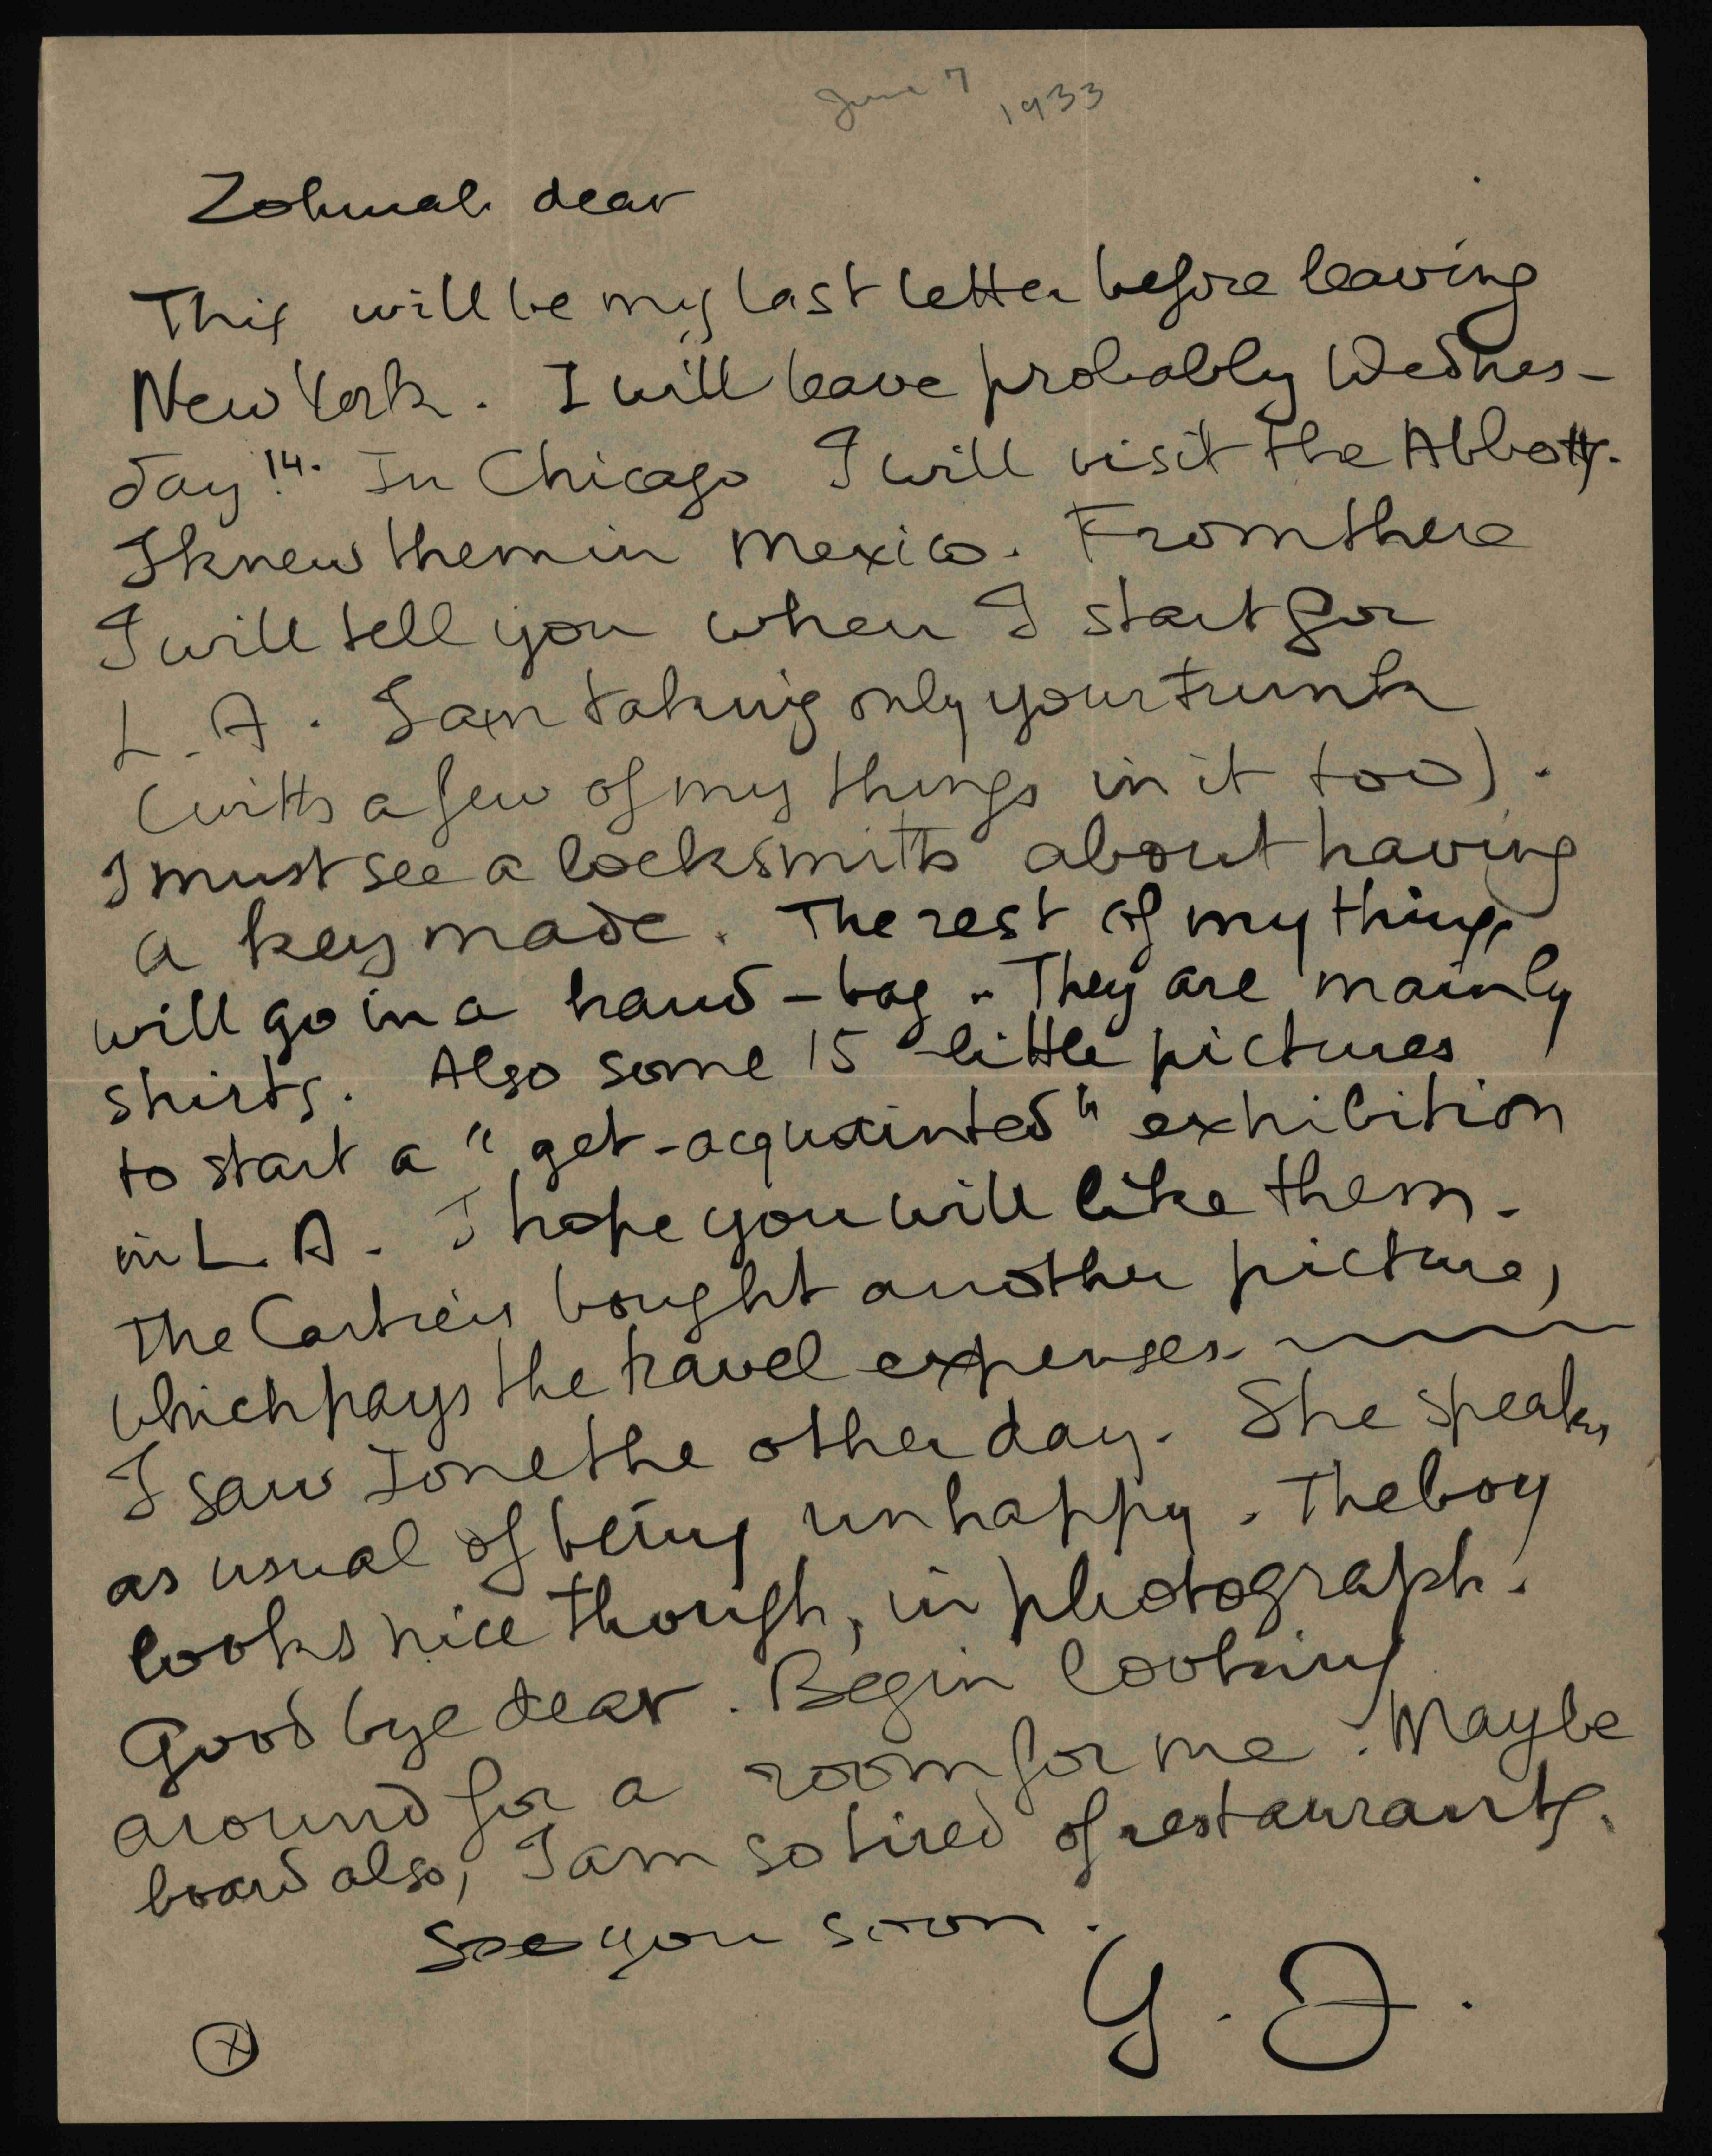 June 7 1933
Zohmah dear
This will be my last letter before leaving
New York. I will leave probably Wednes-
day 14. In Chicago I will visit the Abbotts.
I knew them in Mexico. From there
I will tell you when I start for
L.A. I am taking only your trunk
(with a few of my things in it too).
I must see a locksmith about having
a key made. The rest of my things
will go in a hand-bag. They are mainly
shirts. Also some 15 little pictures
to start a "get-acquainted" exhibition
in L.A. I hope you will like them.
The Cartiers bought another picture,
which pays the travel expenses.
I saw Ione the other day. She speaks
as usual of being unhappy. The boy
looks nice though, in photograph.
Good bye dear. Begin looking
around for a room for me. Maybe
board also, I am so tired of restaurants.
See you soon.
J.
X